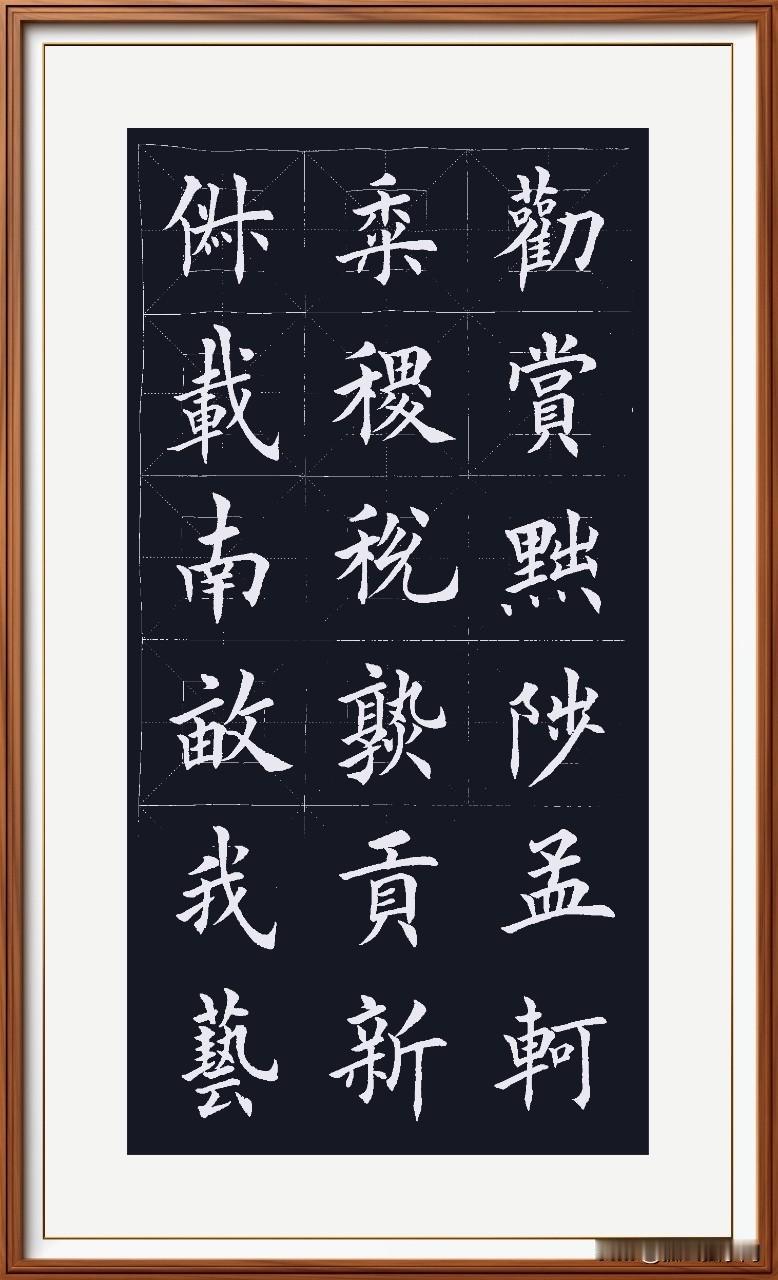 俶載南畝我藝
黍稷稅熟貢新
勸賞黜陟孟軻